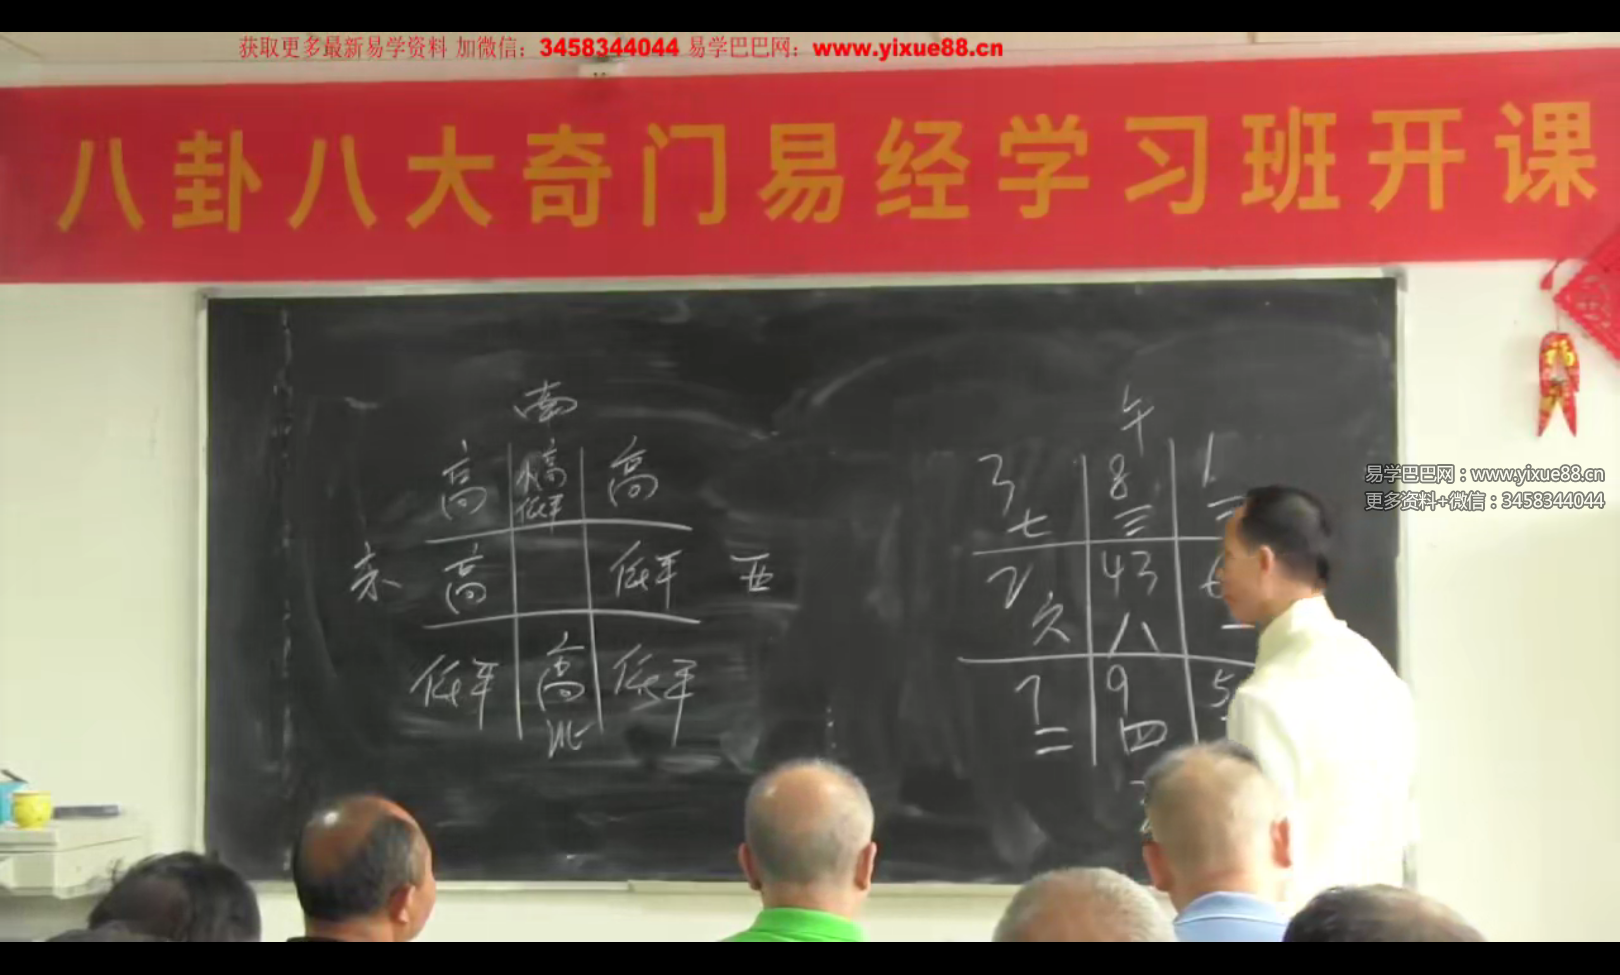 获取更多最新易学资料 加微信：3458344044 易学巴巴网：www.yixue88.cn
八卦八大奇门易经学习班开课
易学巴巴网：www.yixue88.cn
更多资料+微信：3458344044
南
高 高
低平
东 高 低平 西
低平 高 低平
北
午
3 8 1
七 三
2 43
六 八 一
7 9 5
二 四